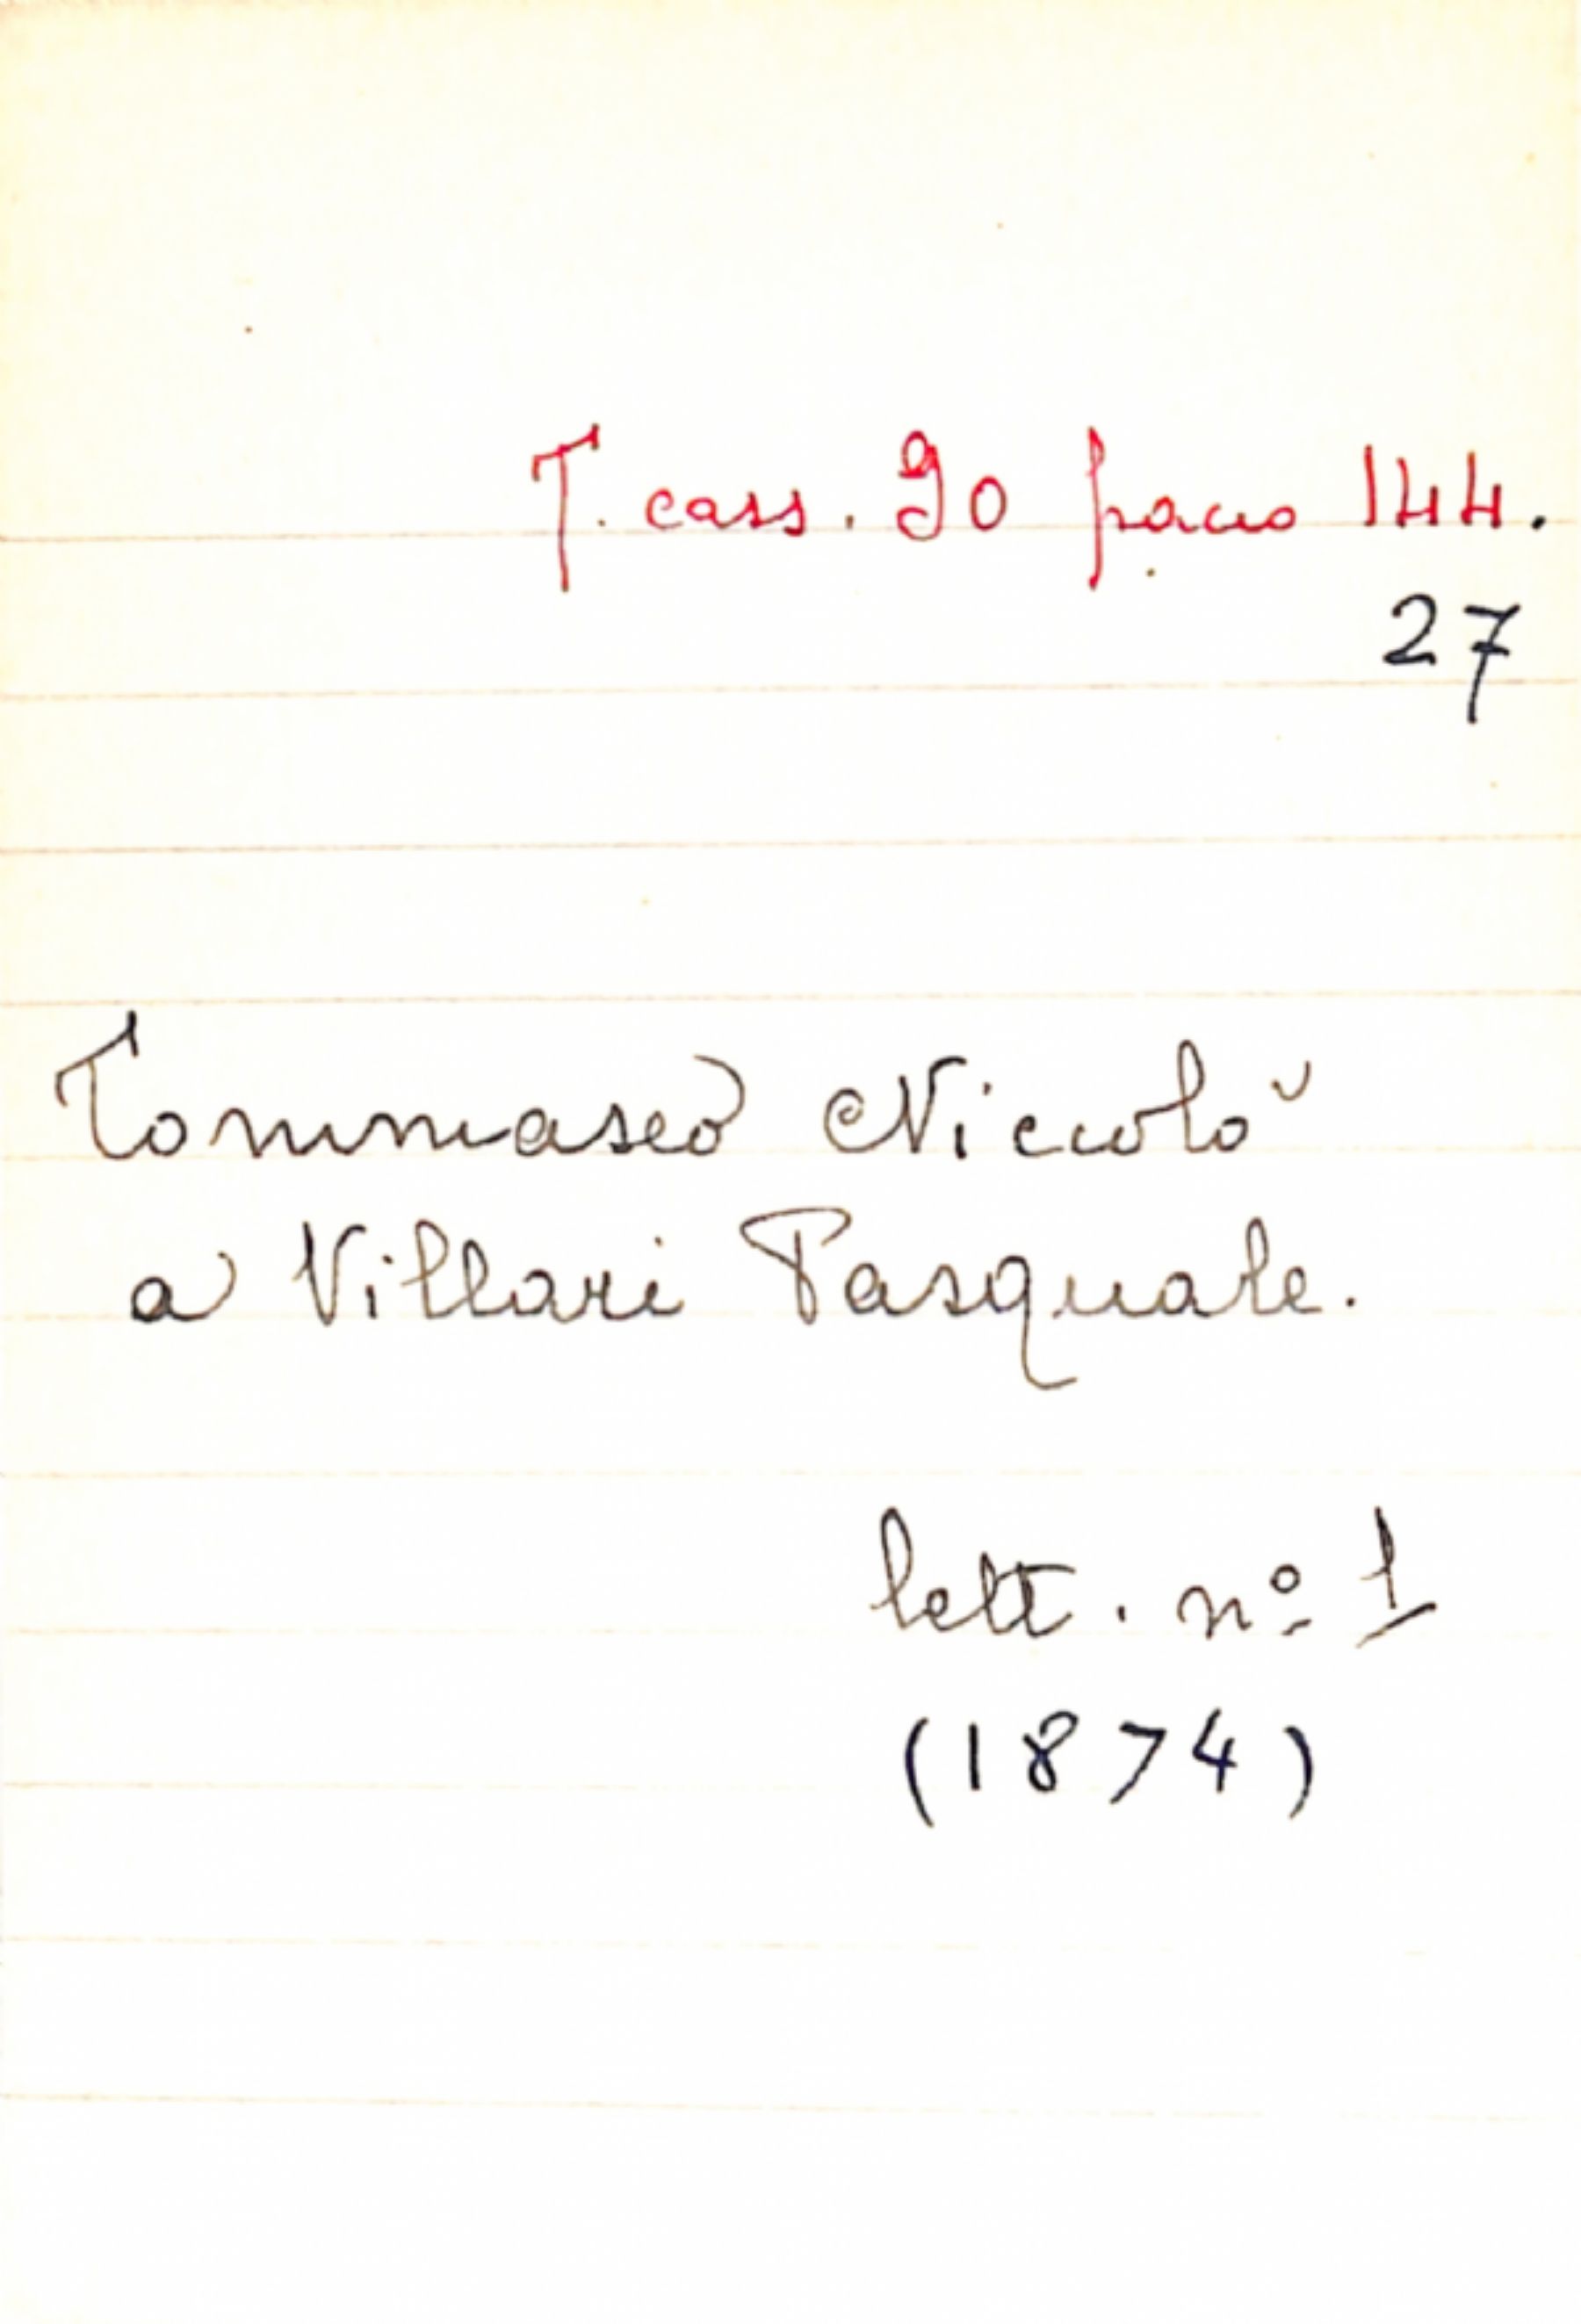 T. cass. 90 pacco 144.
27
Tommaseo Niccolò
a Villari Pasquale.
lett. nº 1
(1874)